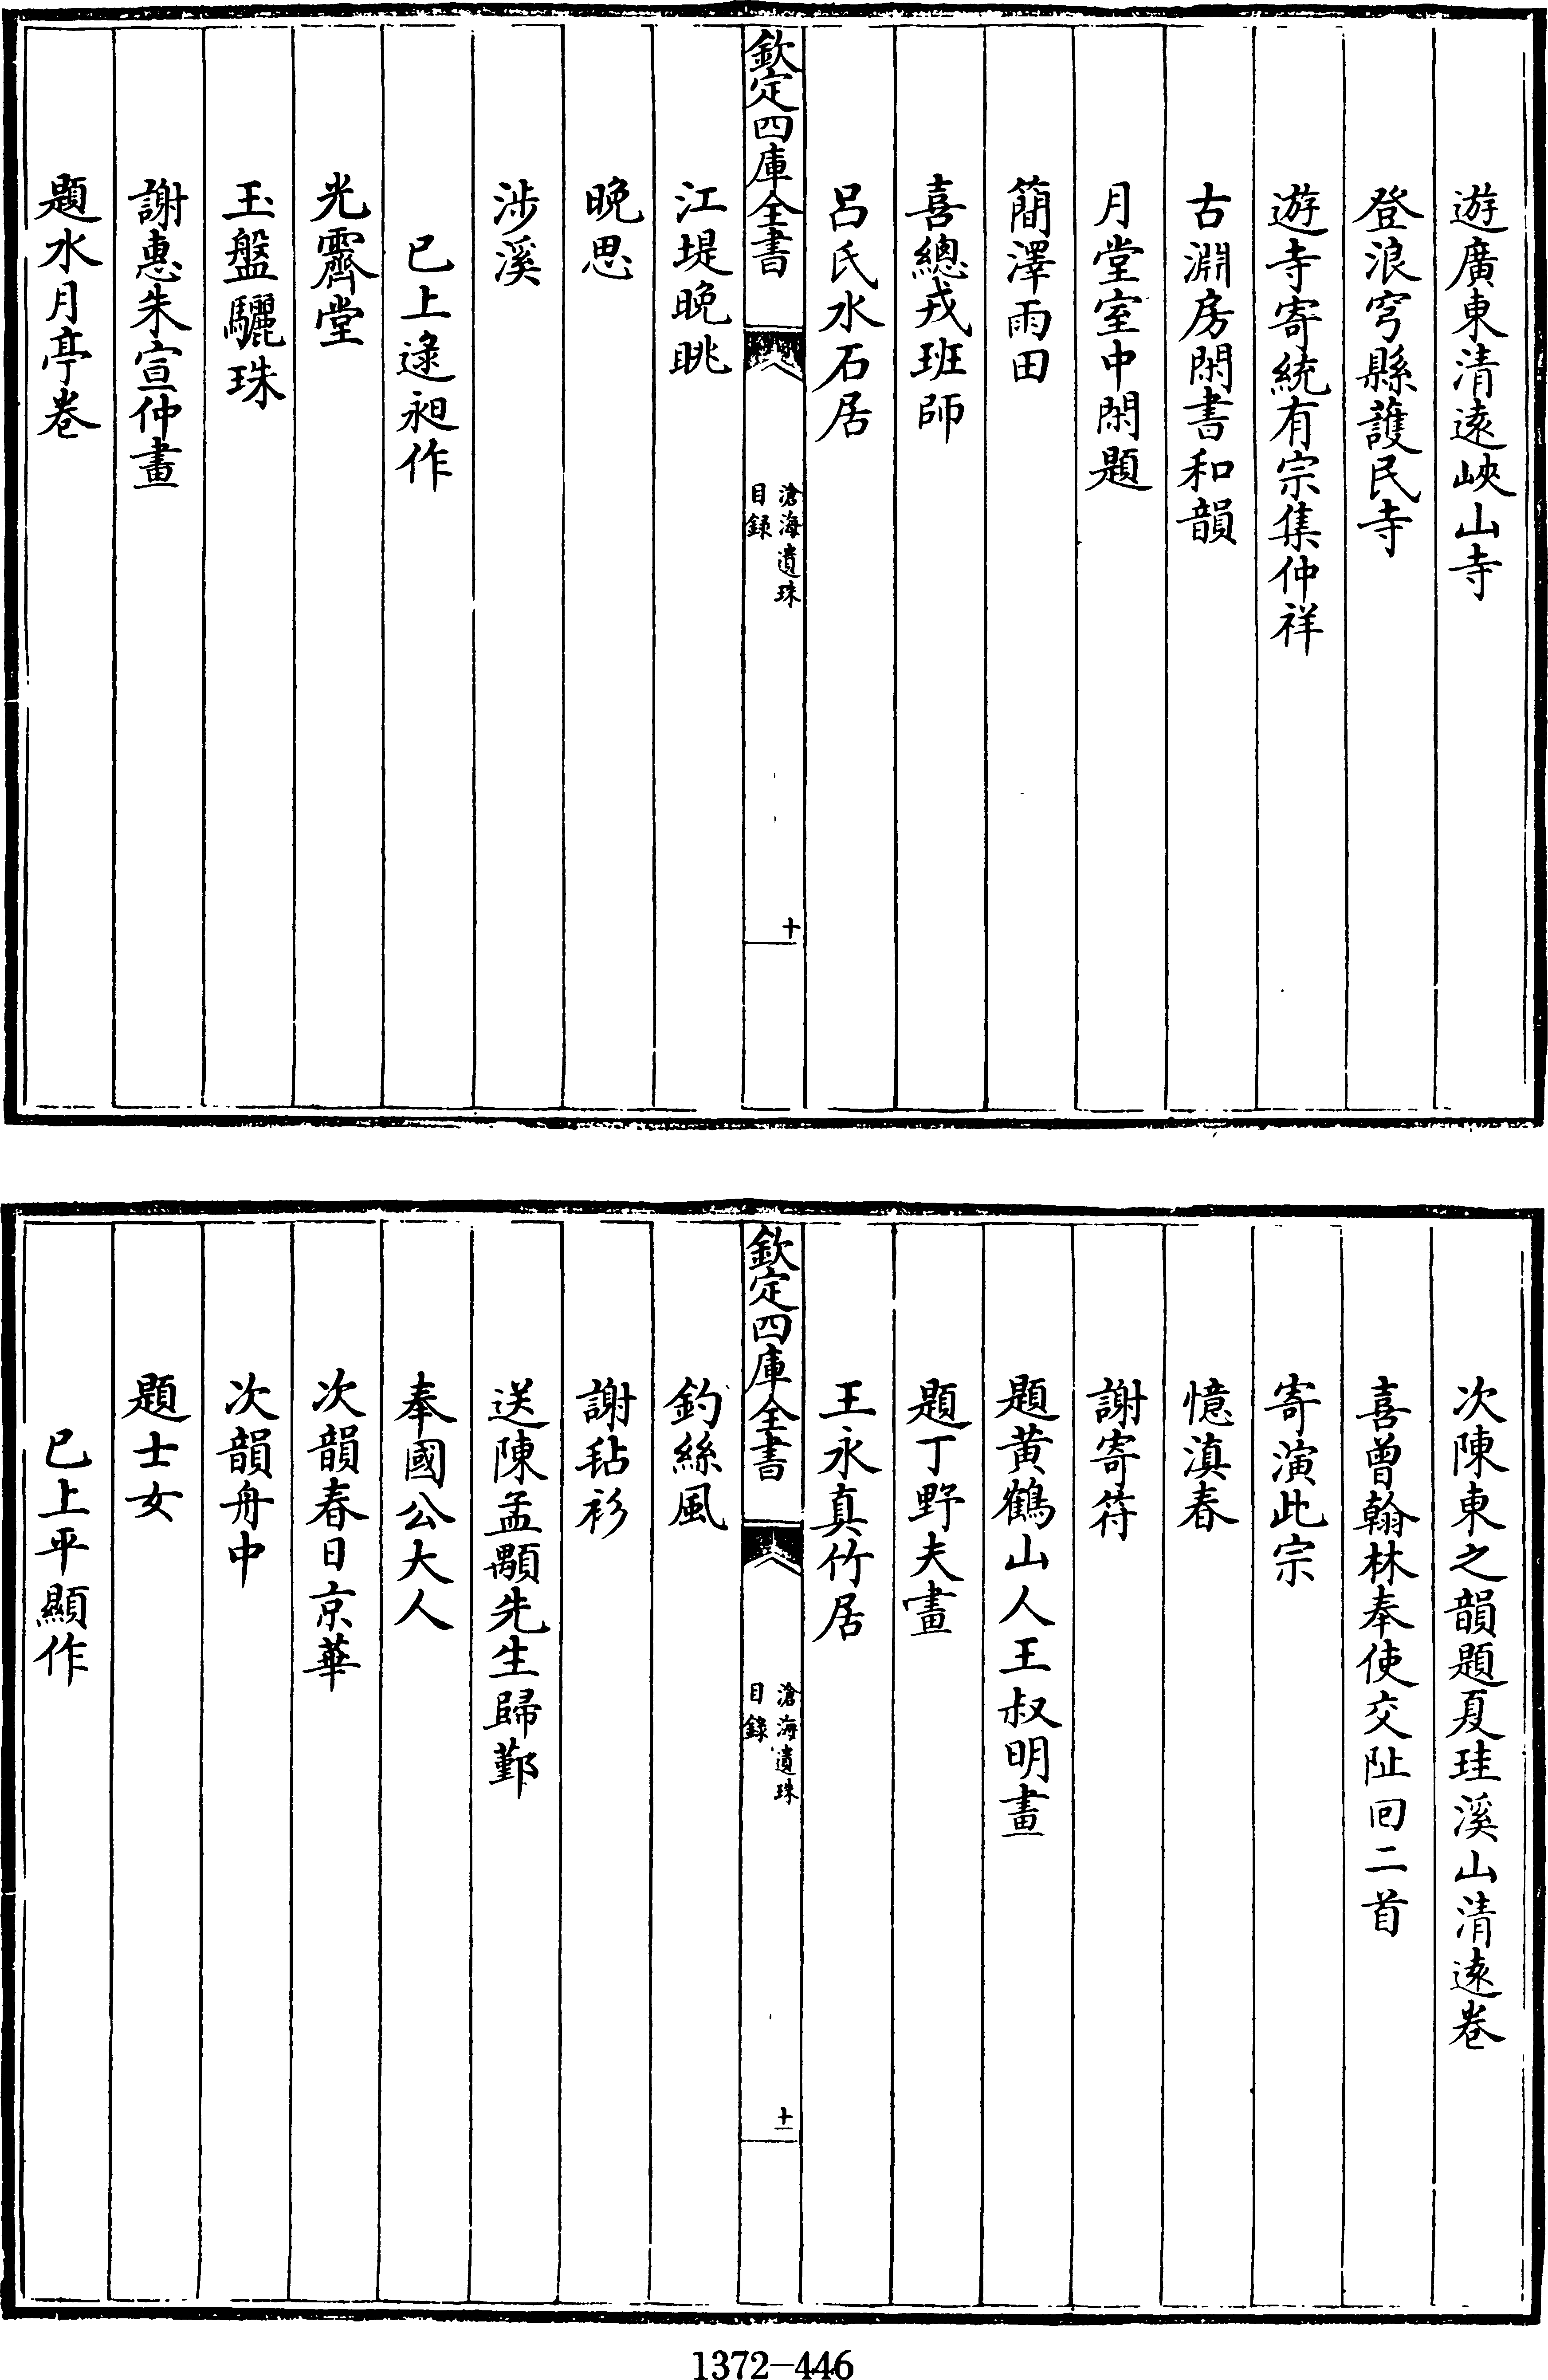 遊廣東清遠峽山寺
登浪穹縣護民寺
遊寺寄統有宗集仲祥
古淵房閑書和韻
月堂室中閑題
簡澤雨田
喜總戎班師
呂氏水石居
欽定四庫全書
滄海遺珠
目録
十
江堤晚眺
晚思
涉溪
已上逯昶作
光霽堂
玉盤驪珠
謝惠朱宣仲畫
題水月亭卷
次陳東之韻題夏珪溪山清遠卷
喜曾翰林奉使交阯回二首
寄演此宗
憶滇春
謝寄符
題黄鶴山人王叔明畫
題丁野夫畫
王永真竹居
欽定四庫全書
滄海遺珠
目錄
十一
釣絲風
謝毡衫
送陳孟顒先生歸鄞
奉國公大人
次韻春日京華
次韻舟中
題士女
已上平顯作
1372-446